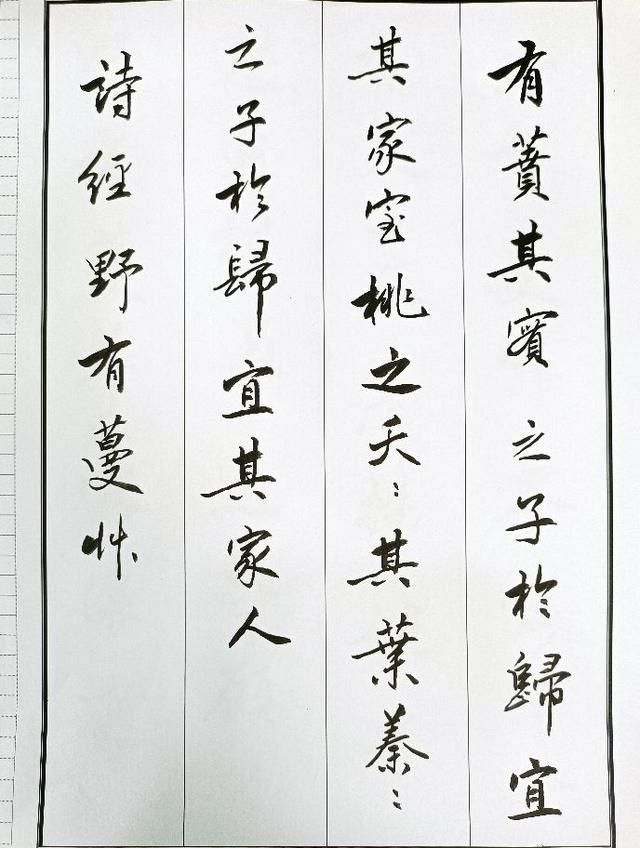 有蕡其賓之子於歸宜
其家室桃之夭〻其葉蓁〻
之子於歸宜其家人
詩經野有蔓艸